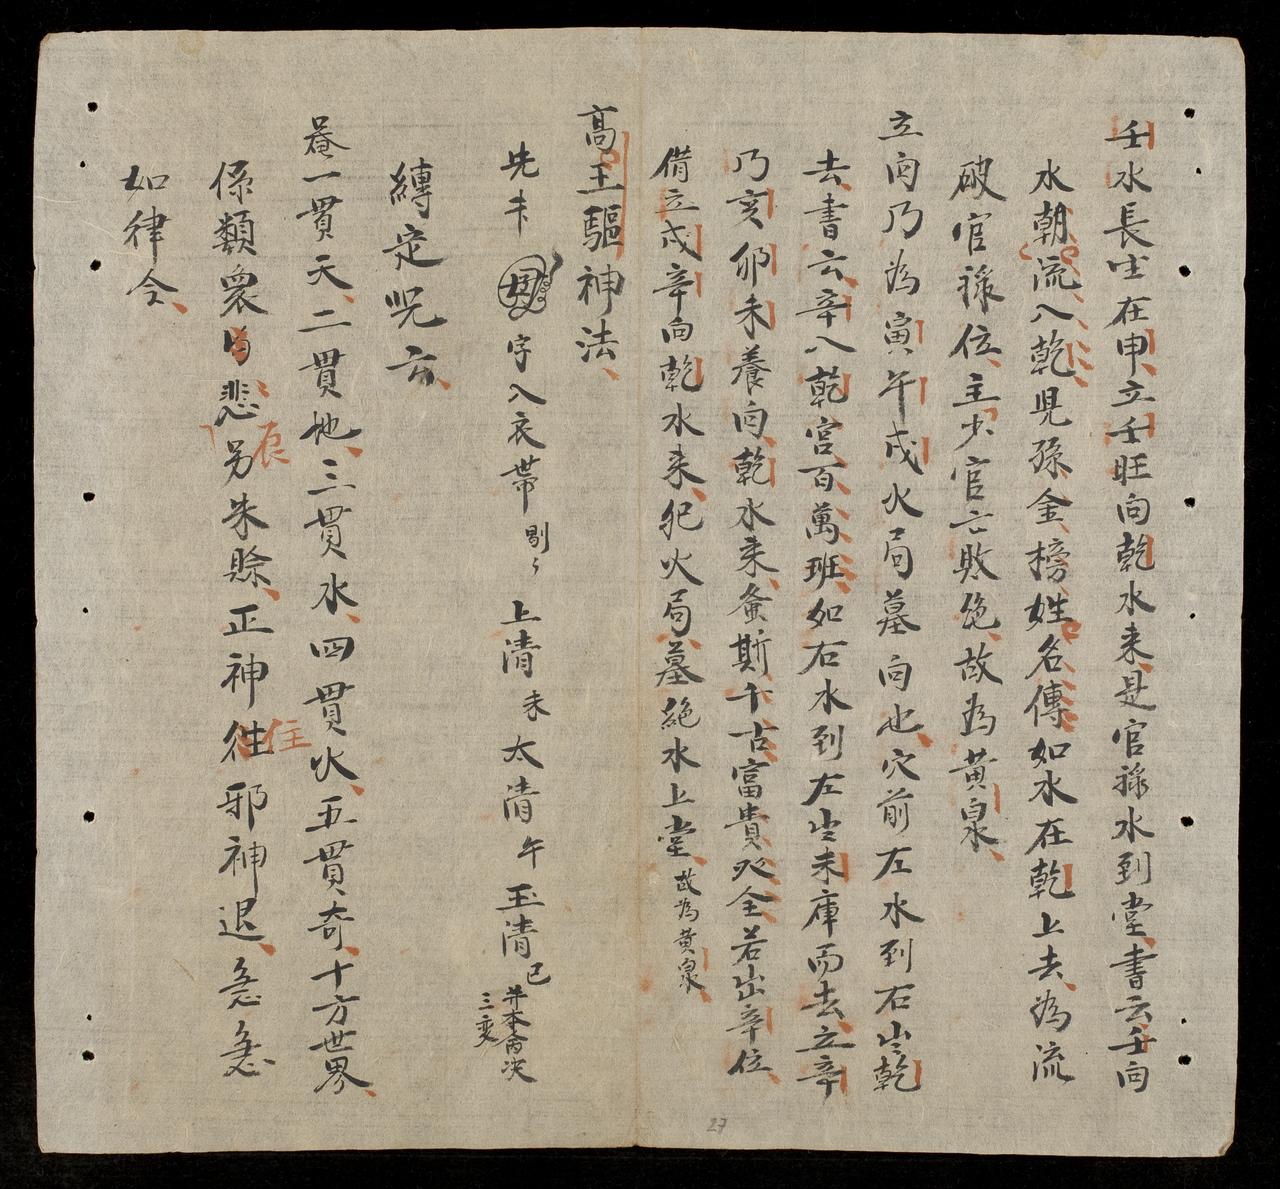 壬水長生在申立壬旺向乾水来是官祿水到堂書云壬向
水朝流入乾児孫金榜姓名傳如水在乾上去為流
破官祿位主少官亡敗絶故為黄泉
立向乃為寅午戌火局墓向也穴前左水到右出乾
去書云辛入乾宮百萬班如右水到左出未庫而去立辛
乃亥卯未養向乾水来螽斯千古富貴双全若出辛位
借立戌辛向乾水来犯火局墓絶水上堂故為黄泉
高王驅神法
先書 字入衣帶剔〻 上清未太清午玉清巳
三變
縛定咒云
菴一貫天二貫地三貫水四貫火五貫奇十方世界
係類衆 悲 另朱賒正神徃住邪神退急急
辰
如律令
27